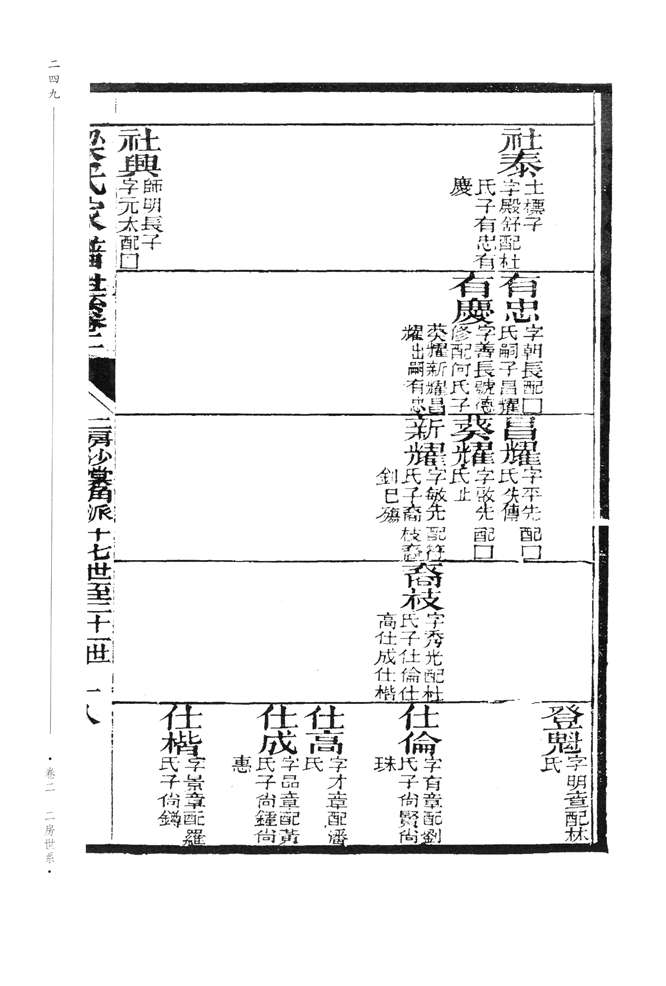 二四九
社泰
士標子
字殿舒配杜
氏子有忠有
慶
社興
師明長子
字元太配□
有忠
字朝長配□
氏嗣子昌耀
有慶
字善長號德
修配何氏子
葵耀新耀昌
耀出嗣有忠
昌耀
字平先配□
氏失傳
葵耀
字啟先配□
氏止
新耀
字敏先配符
氏子裔枝裔
釗巳殤
裔枝
字秀光配杜
氏子仕倫仕
高仕成仕楷
登魁
字明章配林
氏
仕倫
字有章配劉
氏子尙賢尙
珠
仕高
字才章配潘
氏
仕成
字品章配黃
氏子尙鍾尙
惠
仕楷
字景章配羅
氏子尙鐏
梁氏家譜世系卷二
二房沙棠角派十七世至二十一世
十八
卷二 二房世系